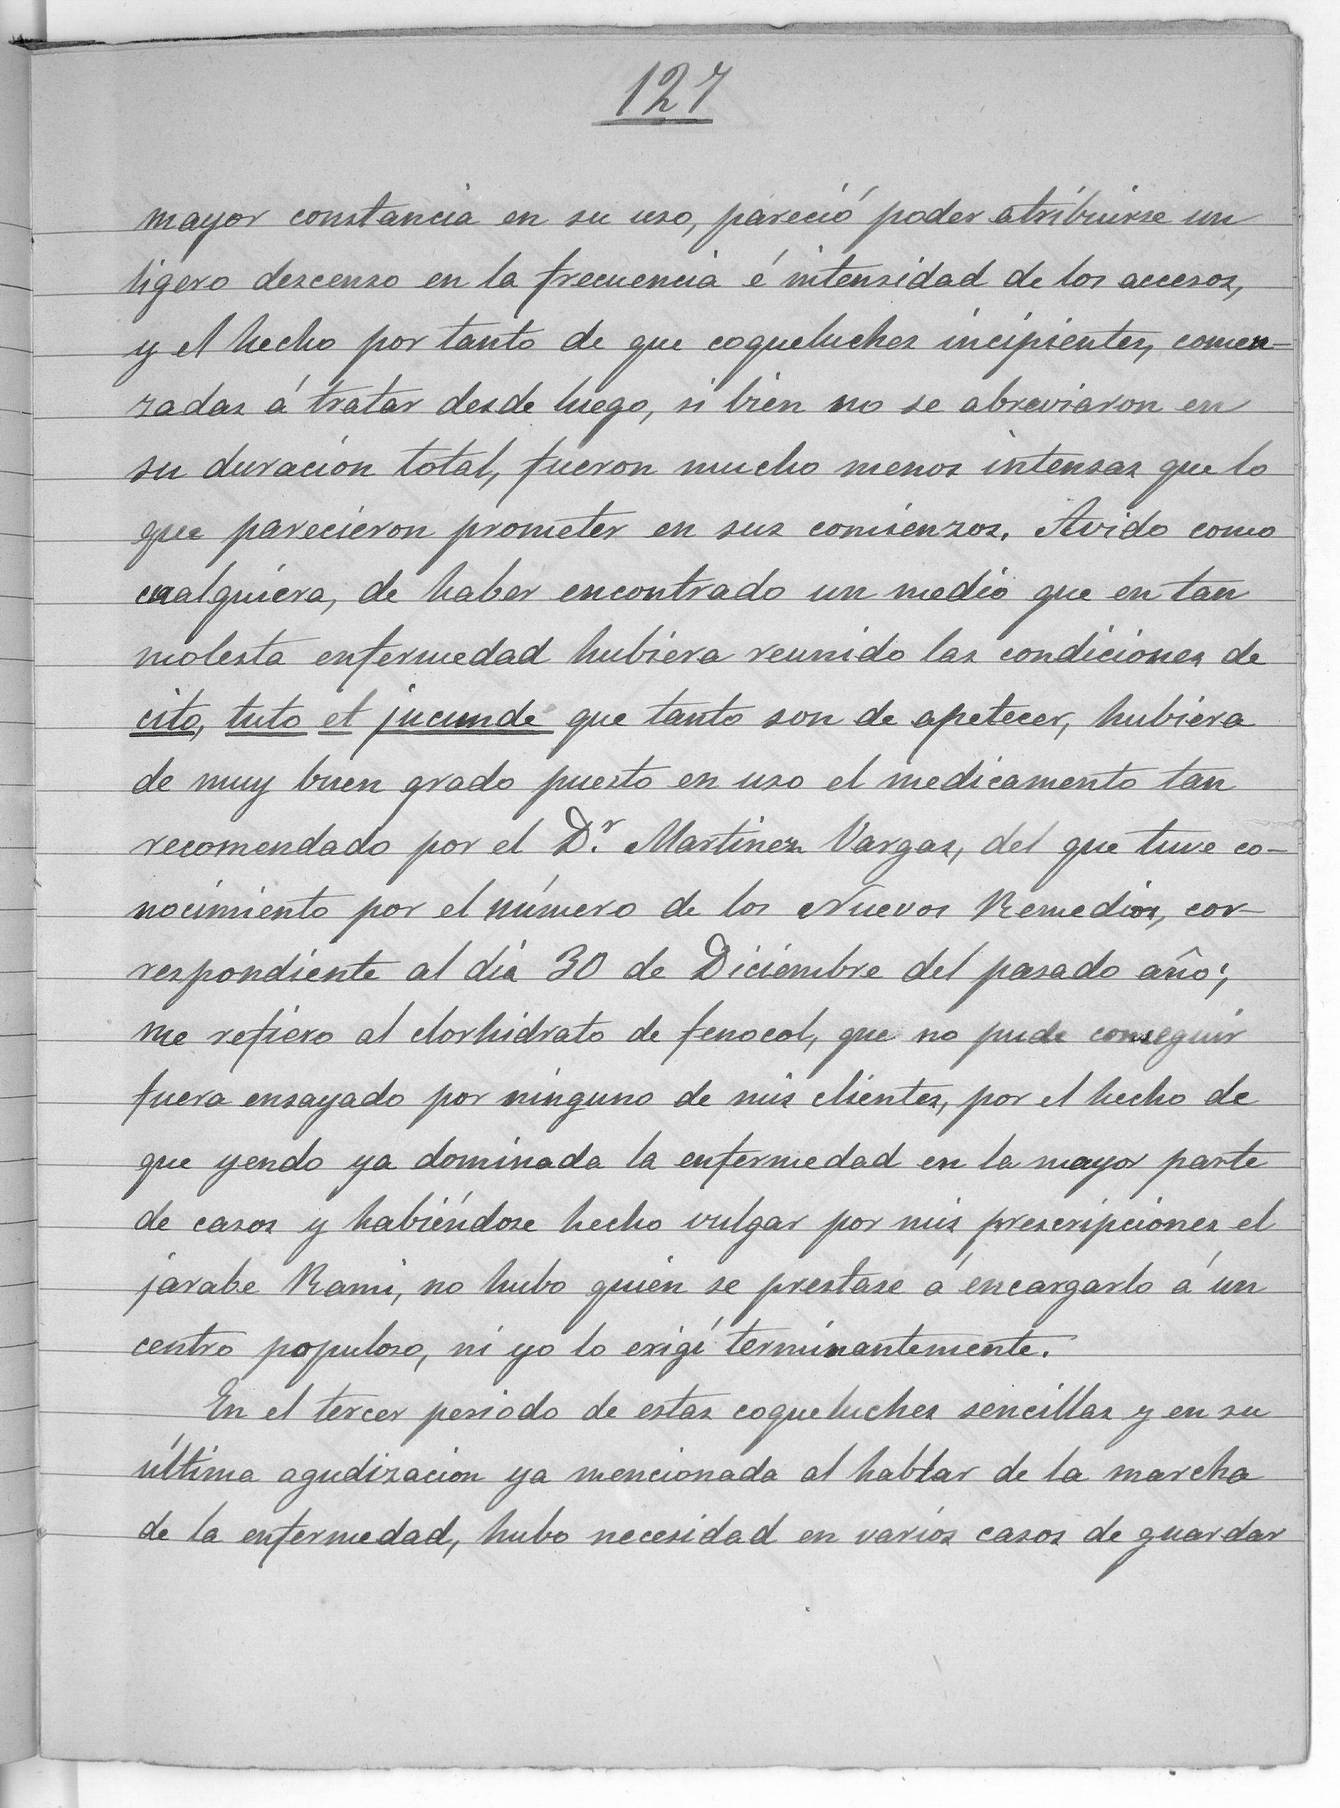 127
mayor constancia en su uso, pareció poder atribuirse un
ligero descenso en la frecuencia é intensidad de los accesos,
y el hecho por tanto de que coqueluches incipientes, comen-
zadas á tratar desde luego, si bien no se abreviaron en
su duración total, fueron mucho menos intensas que lo
que parecieron prometer en sus comienzos. Avido como
cualquiera, de haber encontrado un medio que en tan
molesta enfermedad hubiera reunido las condiciones de
cito, tuto et jucunde que tanto son de apetecer, hubiera
de muy buen grado puesto en uso el medicamento tan
recomendado por el Dr. Martinez Vargas, del que tuve co-
nocimiento por el número de los Nuevos Remedios, cor-
respondiente al dia 30 de Diciembre del pasado año;
me refiero al clorhidrato de fenocol, que no pude conseguir
fuera ensayado por ninguno de mis clientes, por el hecho de
que yendo ya dominada la enfermedad en la mayor parte
de casos y habiéndose hecho vulgar por mis prescripciones el
jarabe Rami, no hubo quien se prestase á encargarlo á un
centro populoso, ni yo lo exigí terminantemente.
En el tercer periodo de estas coqueluches sencillas y en su
última agudizacion ya mencionada al hablar de la marcha
de la enfermedad, hubo necesidad en varios casos de guardar